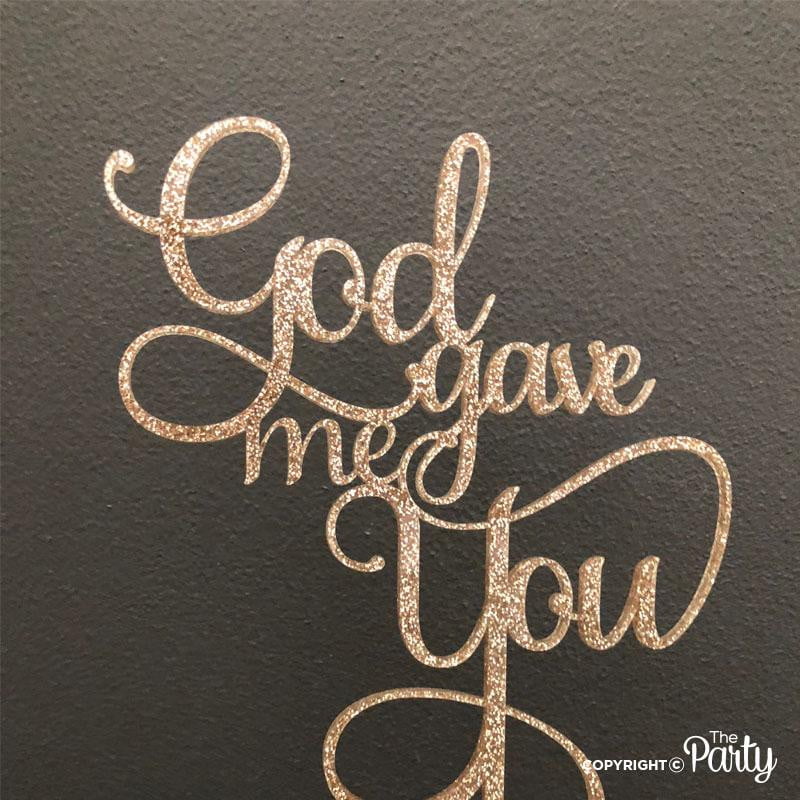 God
gave
me
You
COPYRIGHT © The Party